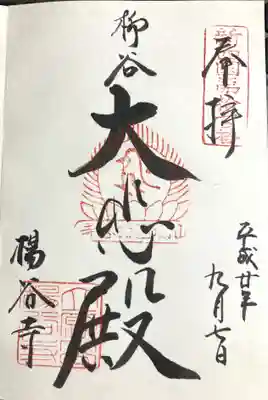 奉拝
平成廿年
九月七日
柳谷
大悲殿
楊谷寺